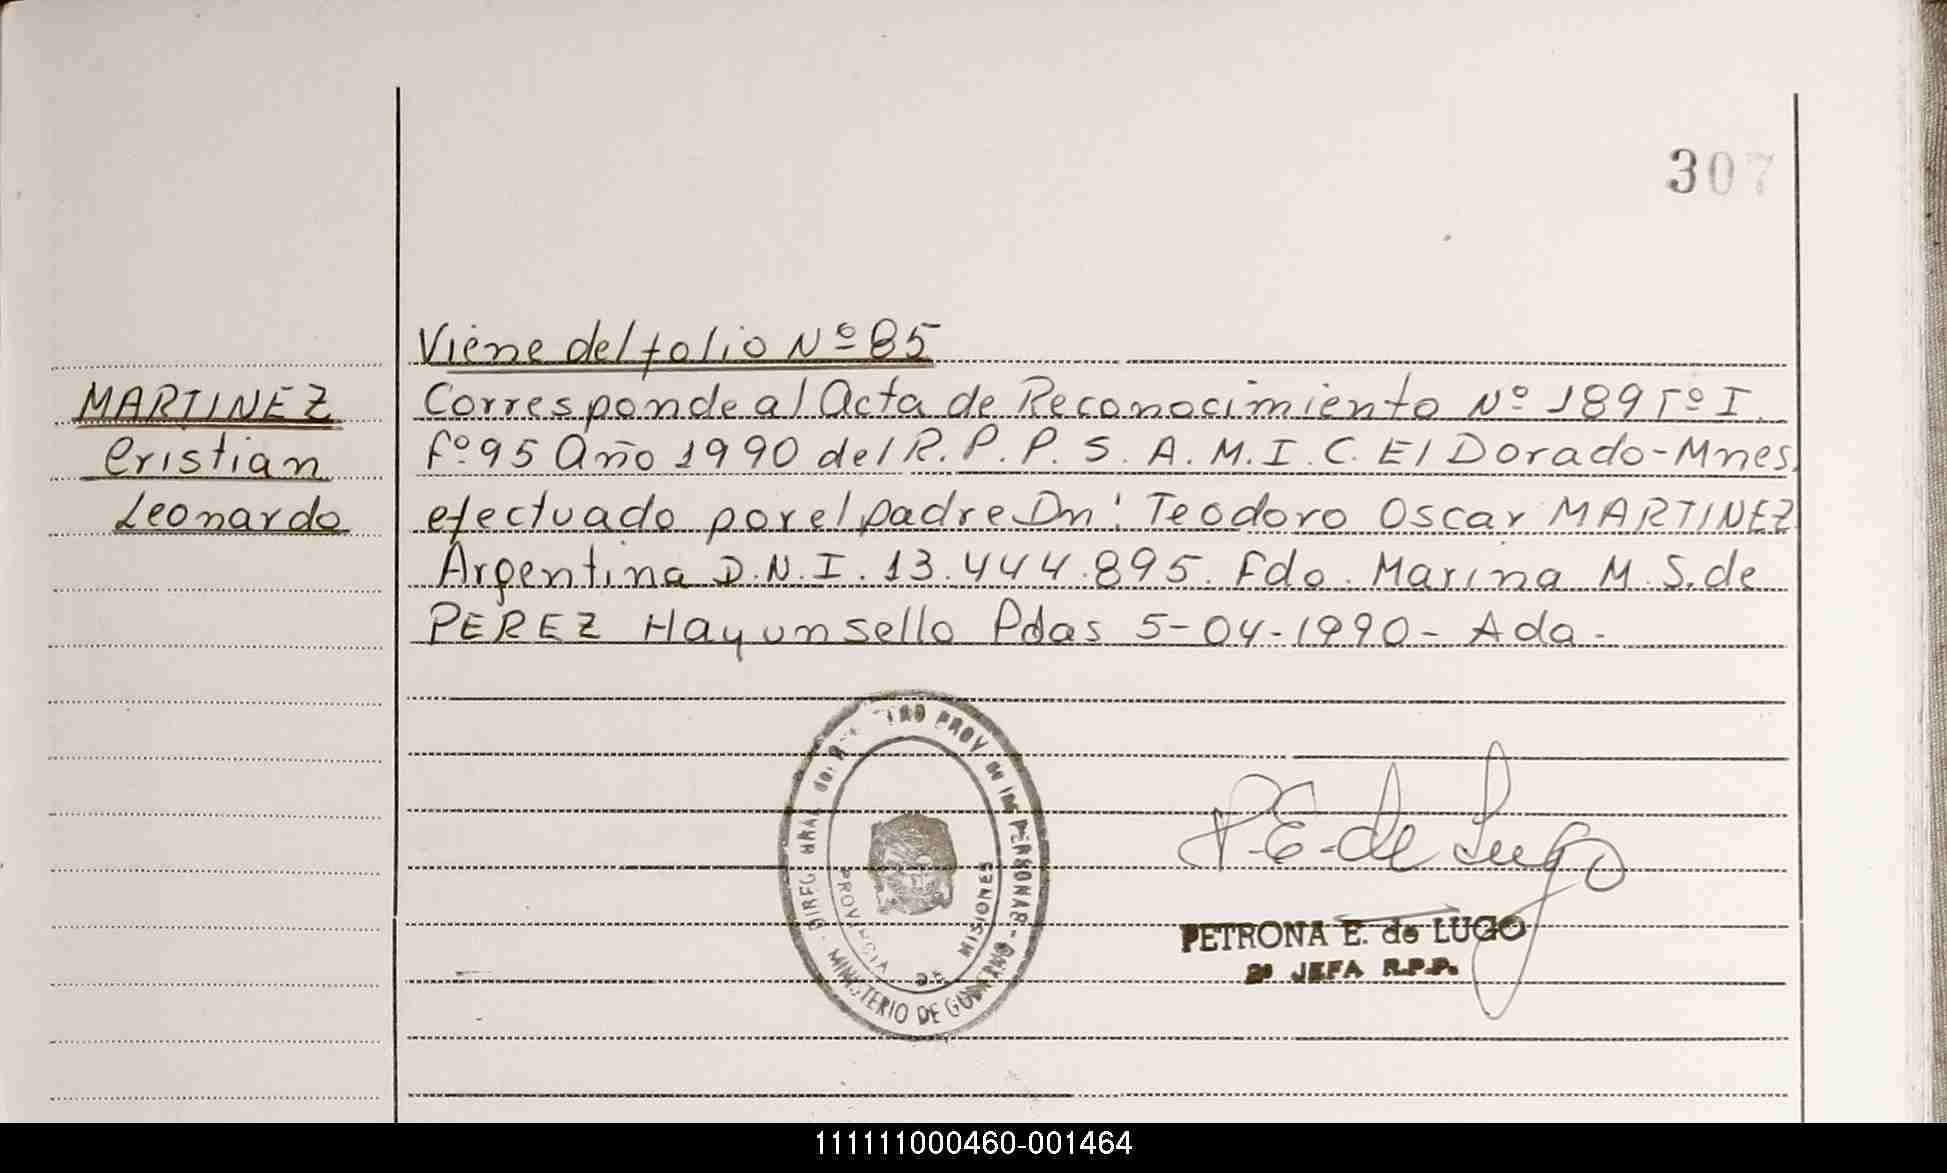 307
Viene del folio Nº 85
MARTINEZ
Cristian
Leonardo
Corresponde al Acta de Reconocimiento Nº 189 Tº I.
Fº 95 Año 1990 del R. P. P. S. A. M. I. C. El Dorado-Mnes.
efectuado por el padre Dn: Teodoro Oscar MARTINEZ
Argentina D.N.I. 13.444.895. Fdo. Marina M. S. de
PEREZ Hay un sello Pdas 5-04-1990- Ada-
PROV. de las PERSONAS - MINISTERIO DE GOBIERNO
PROVINCIA DE MISIONES
P.E. de Lugo
PETRONA E. de LUGO
2ª JEFA R.P.P.
111111000460-001464